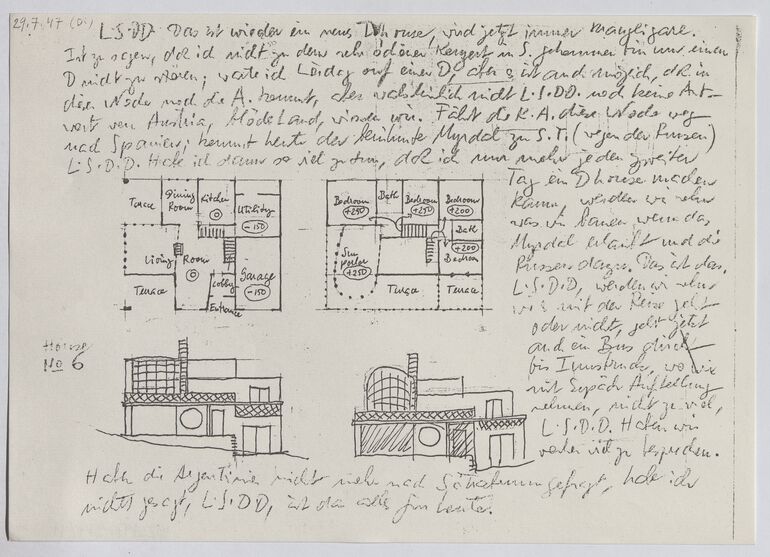 29.7.47 (Di.)
L.S.D.D. Das ist wieder ein neues Dhouse, wird jetzt immer
Ist zu sagen, daß ich nicht zu dem sehr schönen Konzert in S. gekommen bin um einen
D nicht zu; warte ich auf einen D, aber es ist auch möglich, daß in
dieser Woche noch die A. kommt, aber wahrscheinlich nicht L.S.DD. noch keine Ant-
wort von Austria, blöde Land, wissen wir. Fährt die K.A. diese Woche weg
nach Spanien; kommt heute der berühmte Myrdal zu S.T. (wegen der Russen)
L.S.D.D. Habe ich dann so viel zu tun, daß ich nur mehr jeden zweiten
Tag ein Dhouse machen
kann, werden wir sehen
was wir bauen wenn das
Myrdal erlaubt und die
Russen dazu. Das ist das.
L.S.D.D, werden wir sehen
was mit der Reise geht
oder nicht, geht jetzt
auch ein Bus
bis Innsbruck, wo wir
mit Aufstellung
nehmen, nicht zu viel,
L.S.D.D. Haben wir
viel zu besprechen.
Terrace
Dining Room
Kitchen
Utility
-150
Living Room
Lobby
Garage
-150
Terrace
Entrance
Bedroom
+250
Bath
Bedroom
+250
Bedroom
+200
Bath
+200
Bedroom
Sun
+250
Terrace
Terrace
House
No 6
Haben die Argentinier nicht mehr nach gefragt, habe ich
nichts gesagt, L.S.DD, ist das alles für heute.